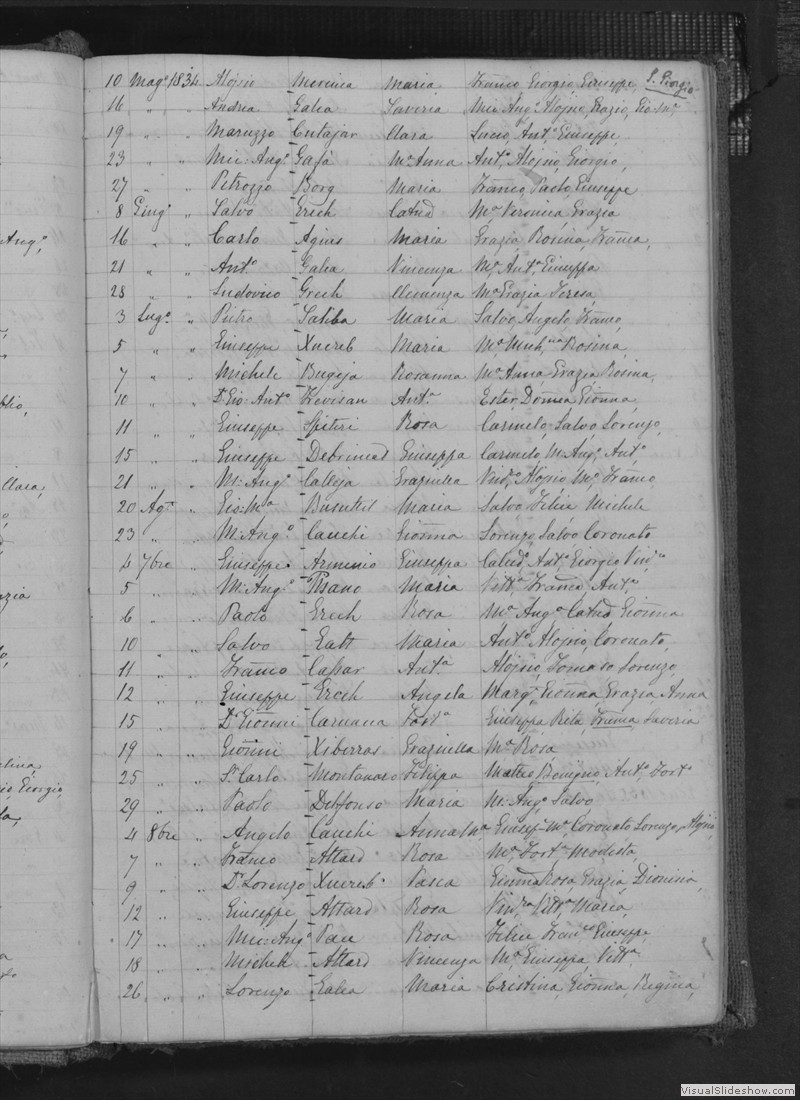 S. Giorgio
10 Magº 1834 Alojsio Mercieca Maria Franco Giorgio Giuseppe
16 " " Andrea Galea Saveria Mic: Angº Alojsio, Grazio, Gio: Mª
19 " " Maruzzo Cutajar Clara Antº Giuseppe,
23 " " Mic: Angº Gafà Mª Anna Antº Alojsio, Giorgio,
27 " " Petruzzo Borg Maria Franco, Paolo, Giuseppe
8 Giugº " Salvo Grech Catud Mª Veronica, Grazia
16 " " Carlo Agius Maria Grazia, Rosina, Franca,
21 " " Antº Galea Vincenza Mª Antª Giuseppa
28 " " Ludovico Grech Clemenza Mª Grazia Teresa,
3 Lugº " Pietro Saliba Maria Salvo, Angelo, Franco,
5 " " Giuseppe Xuereb Maria Rosina,
7 " " Michele Bugeja Rosanna Mª Anna, Grazia Rosina,
10 " " Dr Gio: Antº Trevisan Antª Ester, Gionna,
11 " " Giuseppe Spiteri Rosa Carmelo, Salvo Lorenzo,
15 " " Giuseppe Debrincat Giuseppa Carmelo, M: Angº, Antº
21 " " M: Angº Calleja Graziella Vincº, Alojsio Mª, Franco,
20 Agº " Gio: Mª Busuttil Maria Salvo Felice Michele
23 " " M: Angº Cauchi Gionna Lorenzo, Salvo Coronato
4 7bre " Giuseppe Arminio Giuseppa Catud, Antº, Giorgio
5 " " M: Angº Pisano Maria Vittª Franca, Antª
6 " " Paolo Grech Rosa Mª Angª Catud Gionna
10 " " Salvo Galt Maria Antº Alojsio, Coronato,
11 " " Franco Caspar Antª Alojsio, Tomaso Lorenzo,
12 " " Giuseppe Grech Angela Margª, Gionna, Grazia, Anna
15 " " Dr Gionni Caruana Fortª Giuseppa Rita, Franca, Saveria
19 " " Gionni Xiberras Graziella Mª Rosa
25 " " Sr Carlo Montanaro Filippa Matteo Benigno, Antº, Fortº
29 " " Paolo Debfonso Maria M: Angº Salvo
4 8bre " Angelo Cauchi Anna Mª Giusep: Mª, Coronato Lorenzo, Alojsio,
7 " " Franco Attard Rosa Mª, Fortª Modesta,
9 " " Dr Lorenzo Xuereb Pasca Gionna Rosa Grazia, Dionisia,
12 " " Giuseppe Attard Rosa Vincª, Vittª Maria,
17 " " Mic: Angº Pau Rosa Felice Francº, Giuseppe,
18 " " Michele Attard Vincenza Mª Giuseppa Vittª
26 " " Lorenzo Galea Maria Cristina, Gionna, Regina,
VisualSlideshow.com